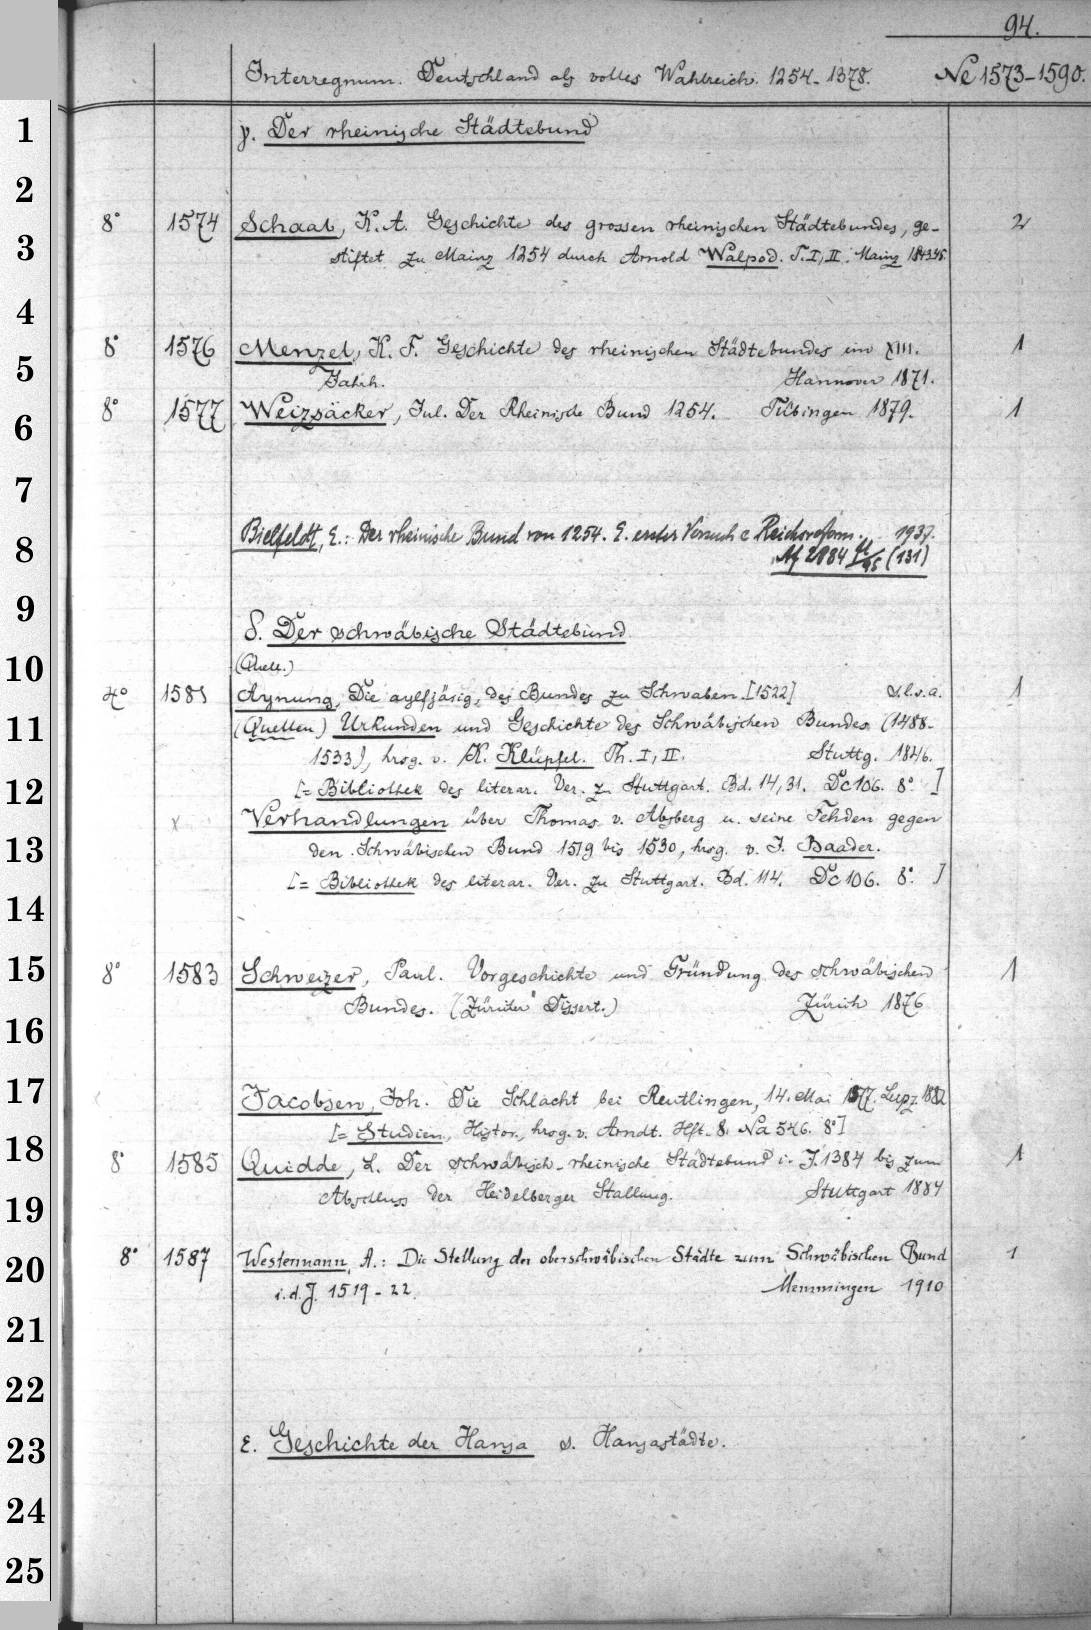 94.
Interregnum. Deutschland als volles Wahlreich. 1254-1378. Ne 1573-1590.
1
γ. Der rheinische Städtebund
2
8° 1574 Schaab, K. A. Geschichte des grossen rheinischen Städtebundes, ge- 2
3
stiftet zu Mainz 1254 durch Arnold Walpod. T. I, II. Mainz 1843.45.
4
8° 1576 Menzel, K. F. Geschichte des rheinischen Städtebundes im XIII. 1
5
Jahrh. Hannover 1871.
8° 1577 Weizsäcker, Jul. Der Rheinische Bund 1254. Tübingen 1879. 1
6
7
Bielfeldt, E.: Der rheinische Bund von 1254. E. erster Versuch e Reichsreform. 1937.
8
Af 2984 (131)
9
δ. Der schwäbische Städtebund
10
(Quell.)
4° 1581 Aynung, Die aylfjärig, des Bundes zu Schwaben. [1522] s.l.s.a. 1
11
(Quellen) Urkunden und Geschichte des Schwäbischen Bundes (1488-
1533), hrsg. v. K. Klüpfel. Th. I, II. Stuttg. 1846.
12
[= Bibliothek des literar. Ver. zu Stuttgart. Bd. 14, 31. Dc 106. 8°. ]
x Verhandlungen über Thomas v. Absberg u. seine Fehden gegen
13
den Schwäbischen Bund 1519 bis 1530, hrsg. v. J. Baader.
[= Bibliothek des literar. Ver. zu Stuttgart. Bd. 114. Dc 106. 8°. ]
14
15
8° 1583 Schweizer, Paul. Vorgeschichte und Gründung des schwäbischen 1
Bundes. (Züricher Dissert.) Zürich 1876
16
17
Jacobsen, Joh. Die Schlacht bei Reutlingen, 14. Mai 1377. Leipz. 1882
[= Studien, Histor., hrsg. v. Arndt. Hft. 8. Na 546. 8°]
18
8° 1585 Quidde, L. Der schwäbisch-rheinische Städtebund i. J. 1384 bis zum 1
19
Abschluss der Heidelberger Stallung. Stuttgart 1884
8° 1587 Westermann, A.: Die Stellung der oberschwäbischen Städte zum Schwäbischen Bund 1
20
i. d. J. 1519-22. Memmingen 1910
21
22
23
ε. Geschichte der Hansa s. Hansastädte.
24
25